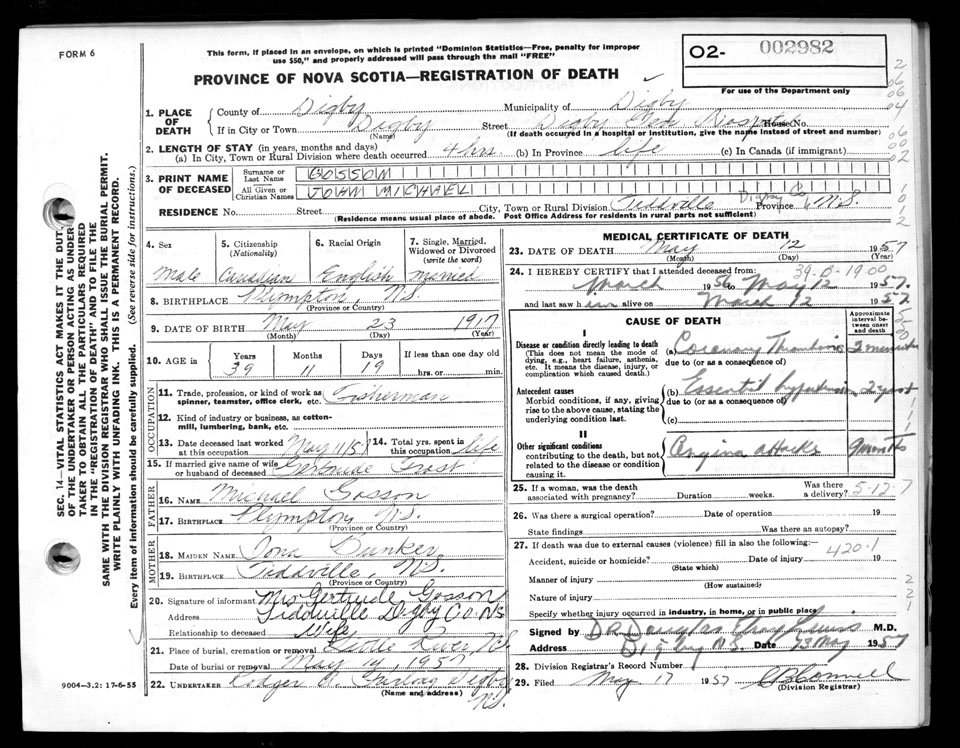 FORM 6
This form, if placed in an envelope, on which is printed "Dominion Statistics—Free, penalty for improper
use $50," and properly addressed will pass through the mail "FREE"
O2- 002982
For use of the Department only
PROVINCE OF NOVA SCOTIA—REGISTRATION OF DEATH
1. PLACE OF DEATH
County of Digby Municipality of Digby
If in City or Town Digby Street Digby Gen Hospital House No.
(Name) (If death occurred in a hospital or institution, give the name instead of street and number)
2. LENGTH OF STAY (in years, months and days)
(a) In City, Town or Rural Division where death occurred 4 hrs. (b) In Province life (c) In Canada (if immigrant)
3. PRINT NAME OF DECEASED
Surname or Last Name GOSSON
All Given or Christian Names JOHN MICHAEL
RESIDENCE No. Street City, Town or Rural Division Tiddville Digby Co Province N.S.
(Residence means usual place of abode. Post Office Address for residents in rural parts not sufficient)
4. Sex Male
5. Citizenship (Nationality) Canadian
6. Racial Origin English
7. Single, Married, Widowed or Divorced (write the word) married
8. BIRTHPLACE Plympton, N.S.
(Province or Country)
9. DATE OF BIRTH May 23 1917
(Month) (Day) (Year)
10. AGE in Years Months Days If less than one day old
39 11 19 hrs. or min.
OCCUPATION
11. Trade, profession, or kind of work as spinner, teamster, office clerk, etc. Fisherman
12. Kind of industry or business, as cotton-mill, lumbering, bank, etc.
13. Date deceased last worked at this occupation May 11/57
14. Total yrs. spent in this occupation life
15. If married give name of wife or husband of deceased Gertrude Frost
FATHER
16. NAME Michael Gosson
17. BIRTHPLACE Plympton, N.S.
(Province or Country)
MOTHER
18. MAIDEN NAME Iona Dunker
19. BIRTHPLACE Tiddville, N.S.
(Province or Country)
20. Signature of informant Mrs Gertrude Gosson
Address Tiddville Digby Co NS
Relationship to deceased Wife
21. Place of burial, cremation or removal Little River N.S.
Date of burial or removal May 14, 1957
22. UNDERTAKER Digby N.S.
(Name and address)
MEDICAL CERTIFICATE OF DEATH
23. DATE OF DEATH May 12 1957
(Month) (Day) (Year)
39-0-1900
24. I HEREBY CERTIFY that I attended deceased from:
March 1956 to May 12 1957.
and last saw h alive on March 12 1957
CAUSE OF DEATH
Approximate interval between onset and death
I
Disease or condition directly leading to death
(This does not mean the mode of dying, e.g., heart failure, asthenia, etc. It means the disease, injury, or complication which caused death.)
(a) Coronary Thrombosis 2 minutes
due to (or as a consequence of)
Antecedent causes
Morbid conditions, if any, giving rise to the above cause, stating the underlying condition last.
(b) Essential hypertension
due to (or as a consequence of)
(c)
II
Other significant conditions
contributing to the death, but not related to the disease or condition causing it.
Angina attacks 9 months
25. If a woman, was the death associated with pregnancy? Duration weeks. Was there a delivery?
5-12-7
26. Was there a surgical operation? Date of operation 19
State findings Was there an autopsy?
27. If death was due to external causes (violence) fill in also the following:—
420.1
Accident, suicide or homicide? Date of injury 19
(State which)
Manner of injury
(How sustained)
Nature of injury
Specify whether injury occurred in industry, in home, or in public place
Signed by Dr Douglas Lewis M.D.
Address Digby N.S. Date 13 May 1957
28. Division Registrar's Record Number
29. Filed May 17 1957
(Division Registrar)
SEC. 14—VITAL STATISTICS ACT MAKES IT THE DUTY
OF THE UNDERTAKER OR PERSON ACTING AS UNDER-
TAKER TO OBTAIN ALL THE PARTICULARS REQUIRED
IN THE "REGISTRATION OF DEATH" AND TO FILE THE
SAME WITH THE DIVISION REGISTRAR WHO SHALL ISSUE THE BURIAL PERMIT.
WRITE PLAINLY WITH UNFADING INK. THIS IS A PERMANENT RECORD.
Every item of information should be carefully supplied. (See reverse side for instructions.)
9004—3.2: 17-6-55